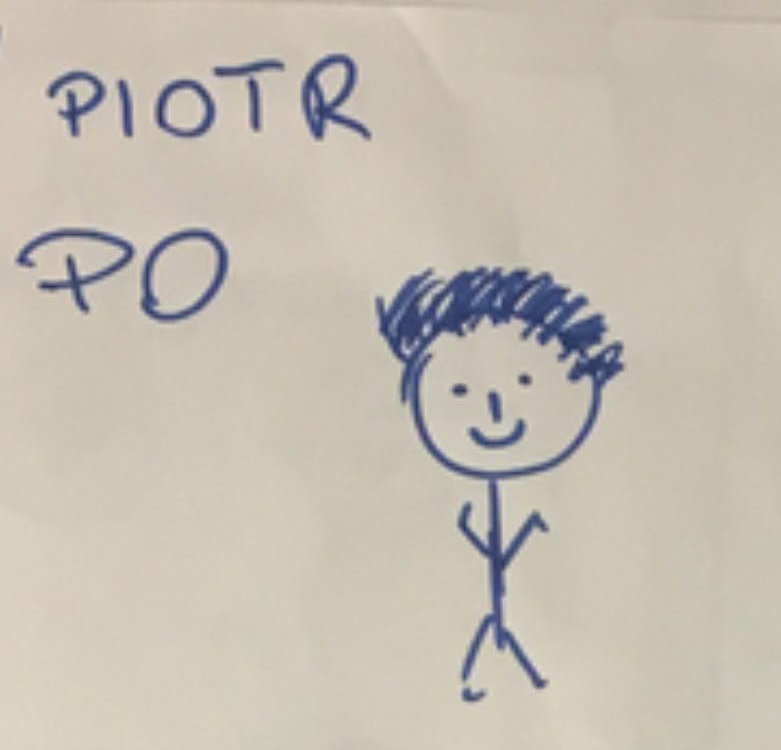 PIOTR
PO